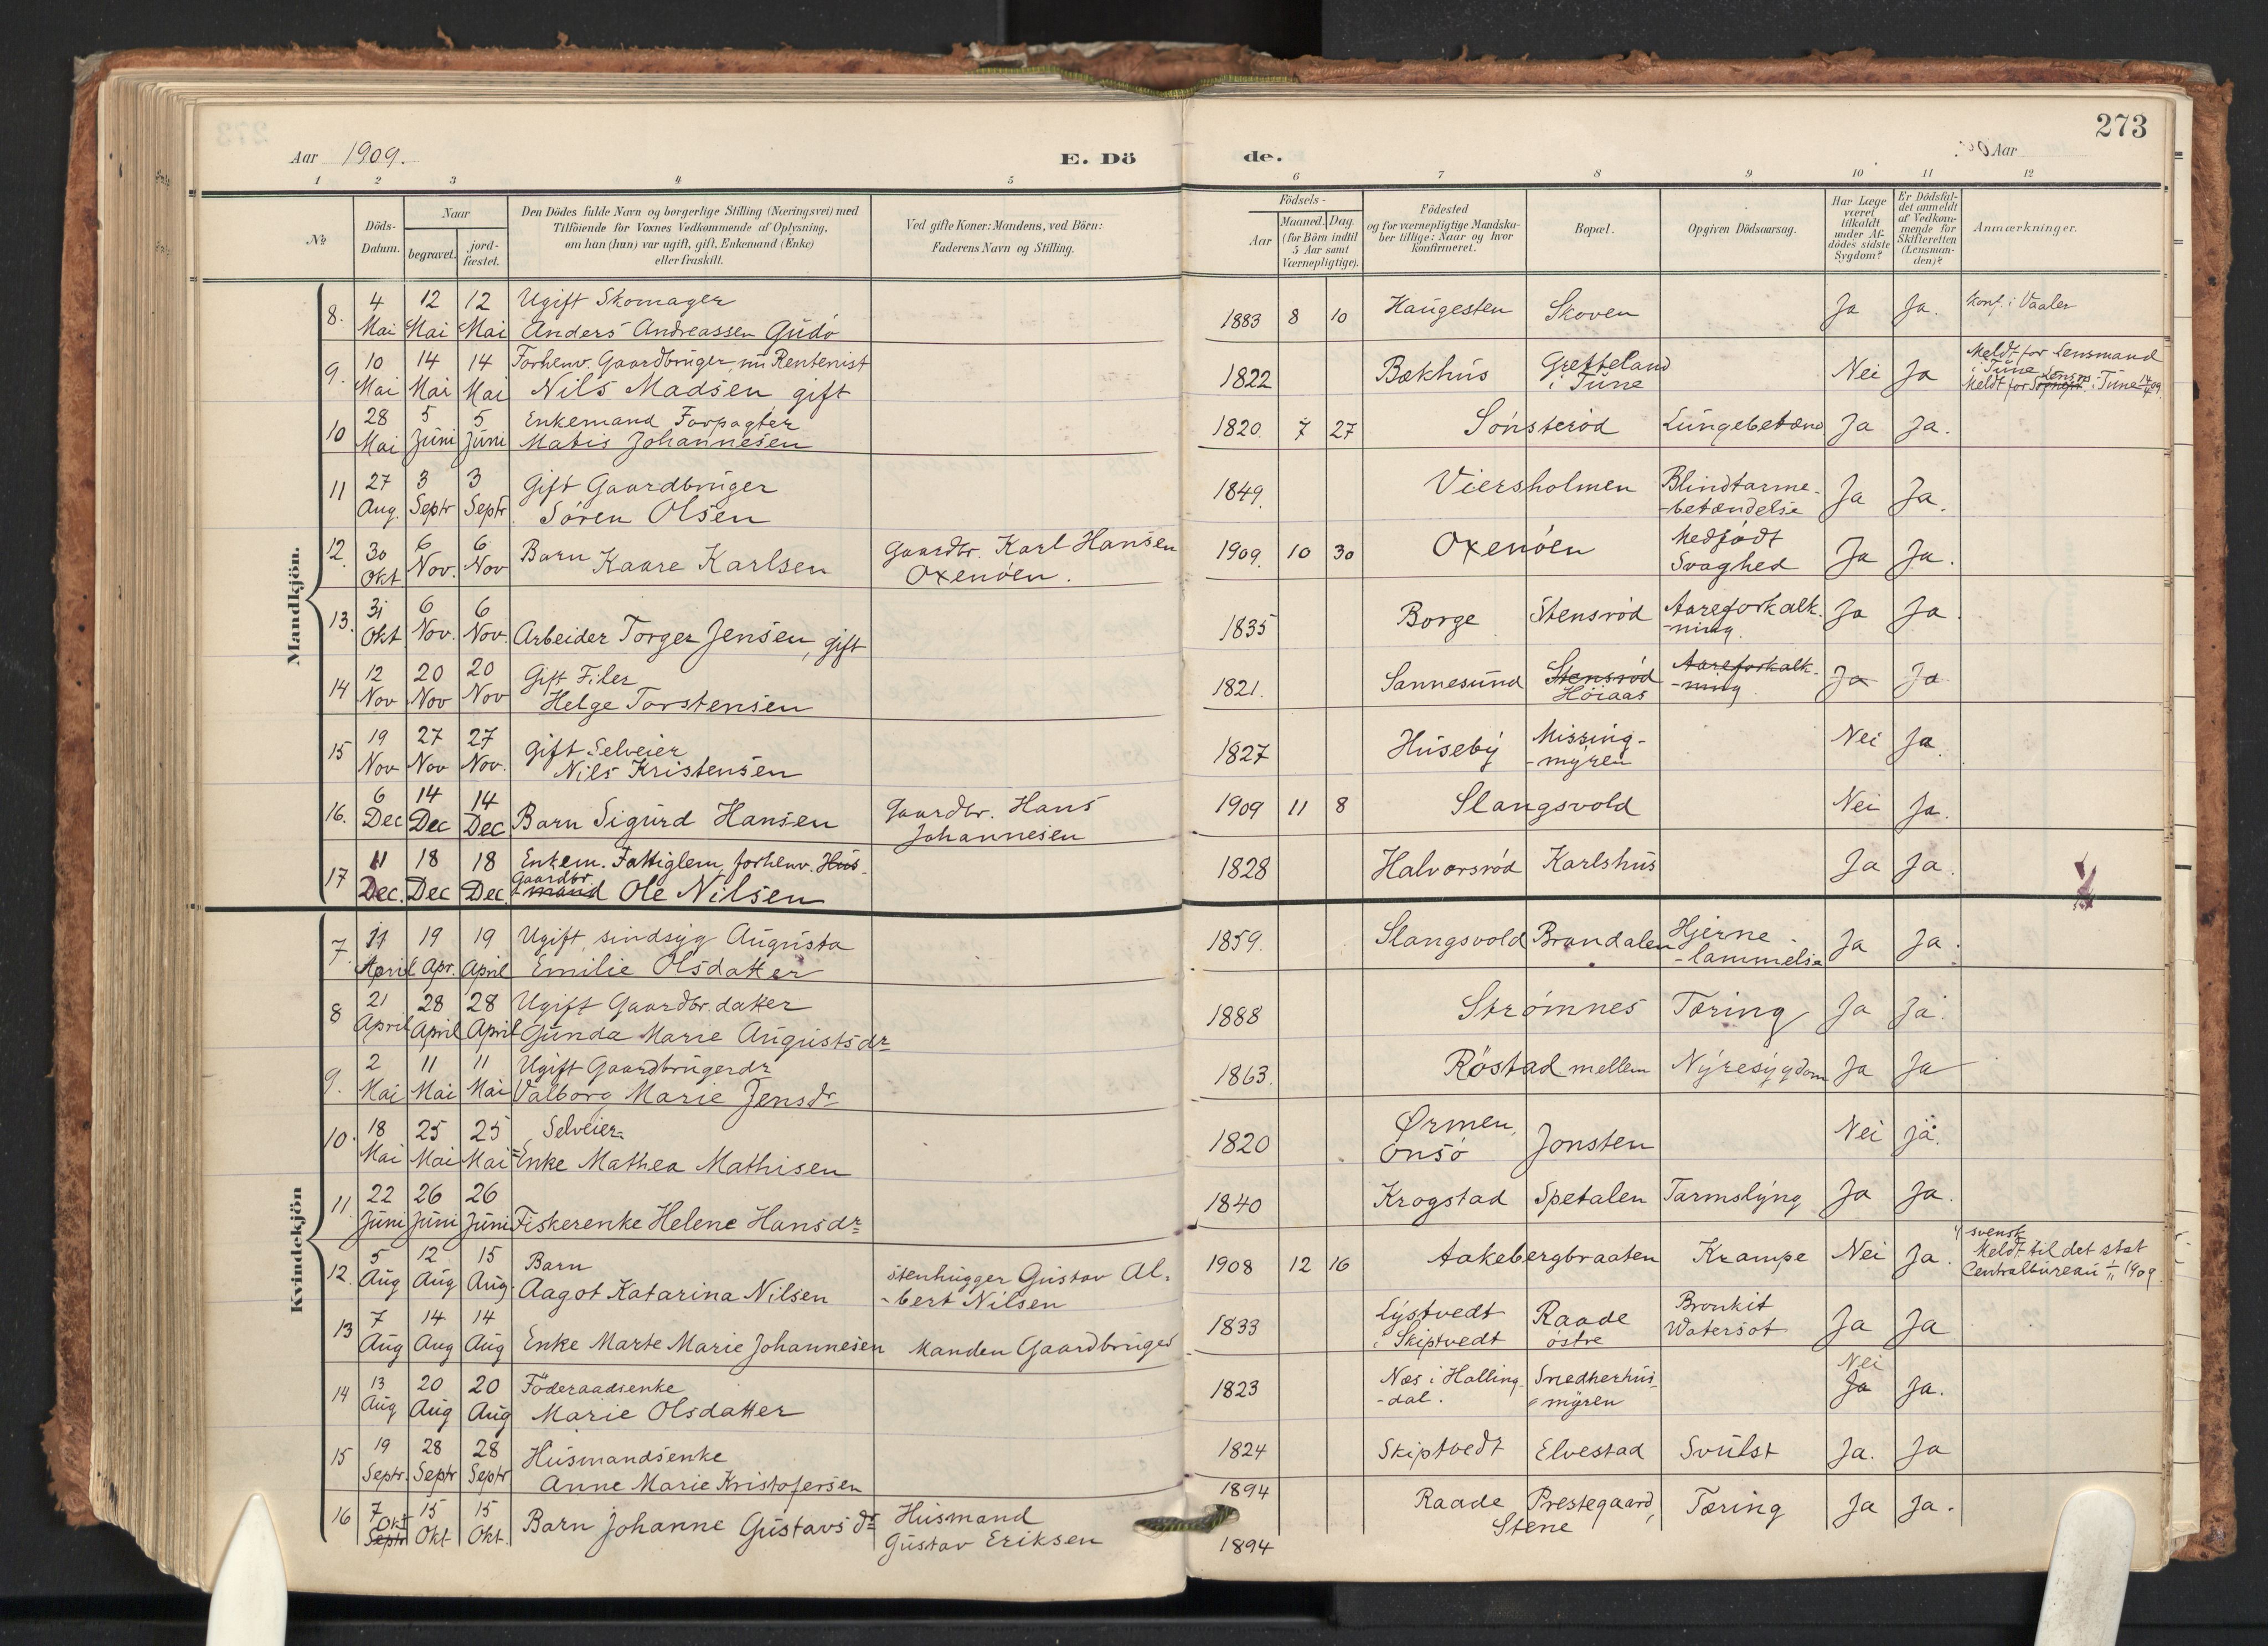 273
Aar 1909. E. Dö de. Aar
1 2 3 4 5 6 7 8 9 10 11 12
№
Döds-Datum.
Naar
begravet.
jord-fæstet.
Den Dödes fulde Navn og borgerlige Stilling (Næringsvei) med
Tilföiende for Voxnes Vedkommende af Oplysning,
om han (hun) var ugift, gift, Enkemand (Enke)
eller fraskilt.
Ved gifte Koner: Mandens, ved Börn:
Faderens Navn og Stilling.
Födsels-
Aar
Maaned. Dag.
(for Börn indtil
5 Aar samt
Værnepligtige).
Födested
og for værnepligtige Mandska-
ber tillige: Naar og hvor
konfirmeret.
Bopæl.
Opgiven Dödsaarsag.
Har Læge
været
tilkaldt
under Af-
dödes sidste
Sygdom?
Er Dödsfal-
det anmeldt
af Vedkom-
mende for
Skifteretten
(Lensman-
den)?
Anmærkninger.
Mandkjön.
8. 4 Mai 12 Mai 12 Mai Ugift Skomager
Anders Andreassen Gudö
1883 8 10 Haugesten Skoven Ja Ja. Konf. i Vaaler
9. 10 Mai 14 Mai 14 Mai Forhenv. Gaardbruger, nu Rentenist
Nils Madsen gift
1822 Bækhus Gretteland i Tune Nei Ja Meldt for Lensmand
i Tune
Meldt for Lensm i Tune 14/4 09
10 28 Mai 5 Juni 5 Juni Enkemand Forpagter
Matis Johannesen
1820. 7 27 Sönsteröd Lungebetænd Ja Ja.
11 27 Aug. 3 Septr 3 Septr. Gift Gaardbruger
Sören Olsen
1849. Viersholmen Blindtarme-
-betændelse Ja Ja.
12. 30 Okt 6 Nov. 6 Nov Barn Kaare Karlsen Gaardbr. Karl Hansen
Oxenöen.
1909. 10 30 Oxenöen Medfödt
Svaghed Ja Ja.
13. 31 Okt 6 Nov. 6 Nov. Arbeider Torger Jensen, gift
1835 Borge Stensröd Aareforkalk-
-ning. Ja Ja.
14 12 Nov 20 Nov 20 Nov Gift Filer
Helge Torstensen
1821. Sannesund Stensröd
Höiaas Aareforkalk-
-ning. Ja Ja
15 19 Nov 27 Nov 27 Nov. gift Selveier
Nils Kristensen
1827 Huseby Missing-
-myren Nei Ja.
16. 6 Dec 14 Dec 14 Dec Barn Sigurd Hansen Gaardbr. Hans
Johannesen
1909 11 8 Slangsvold Nei Ja.
17 11 Dec. 18 Dec 18 Dec. Enkem. Fattiglem, forhenv. Hus-
Gaardbr.
-mand Ole Nilsen
1828 Halvorsröd Karlshus Ja Ja.
Kvindekjön
7. 11 April 19 Apr. 19 April Ugift, sindsyg Augusta
Emilie Olsdatter
1859. Slangsvold Brandalen Hjerne-
-lammelse Ja Ja.
8 21 April 28 April 28 April Ugift Gaardbr. datter
Gunda Marie Augustsdr
1888 Strömnes Tæring Ja Ja.
9. 2 Mai 11 Mai 11 Mai Ugift Gaardbrugerdr
Valborg Marie Jensdr
1863. Röstad mellem Nyresygdom Ja Ja
10. 18 Mai 25 Mai 25 Mai Selveier-
Enke Mathea Mathisen
1820 Ørmen,
Onsö Jonsten Nei Ja.
11. 22 Juni 26 Juni 26 Juni Fiskerenke Helene Hansdr
1840 Krogstad Spetalen Tarmslyng Ja Ja.
12. 5 Aug 12 Aug 15 Aug. Barn
Aagot Katarina Nilsen Stenhugger Gustav Al-
-bert Nilsen
1908 12 16 Aakebergbraaten Krampe Nei Ja. svensk
Meldt til det stat
Centralbureau 1/11 1909.
13 7 Aug 14 Aug 14 Aug Enke Marte Marie Johannesen Manden Gaardbruger
1833 Lystvedt
i Skiptvedt Raade
östre Bronkit
Watersot Ja Ja
14 13 Aug 20 Aug 20 Aug Föderaadsenke
Marie Olsdatter
1823 Næs i Halling-
-dal. Snedkerhus-
-myren Nei
Ja Ja.
15 19 Septr. 28 Septr 28 Septr Husmandsenke
Anne Marie Kristofersen
1824 Skiptvedt Elvestad Svulst Ja. Ja
16 7 Okt Septr 15 Okt 15 Okt. Barn Johanne Gustavsdr Husmand
Gustav Eriksen
1894 Raade Prestegaard,
Stene Tæring Ja Ja.
1894